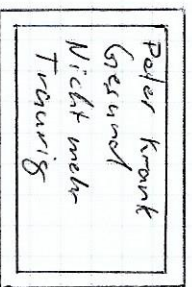 Peter krank
Gesund
Nicht mehr
Traurig